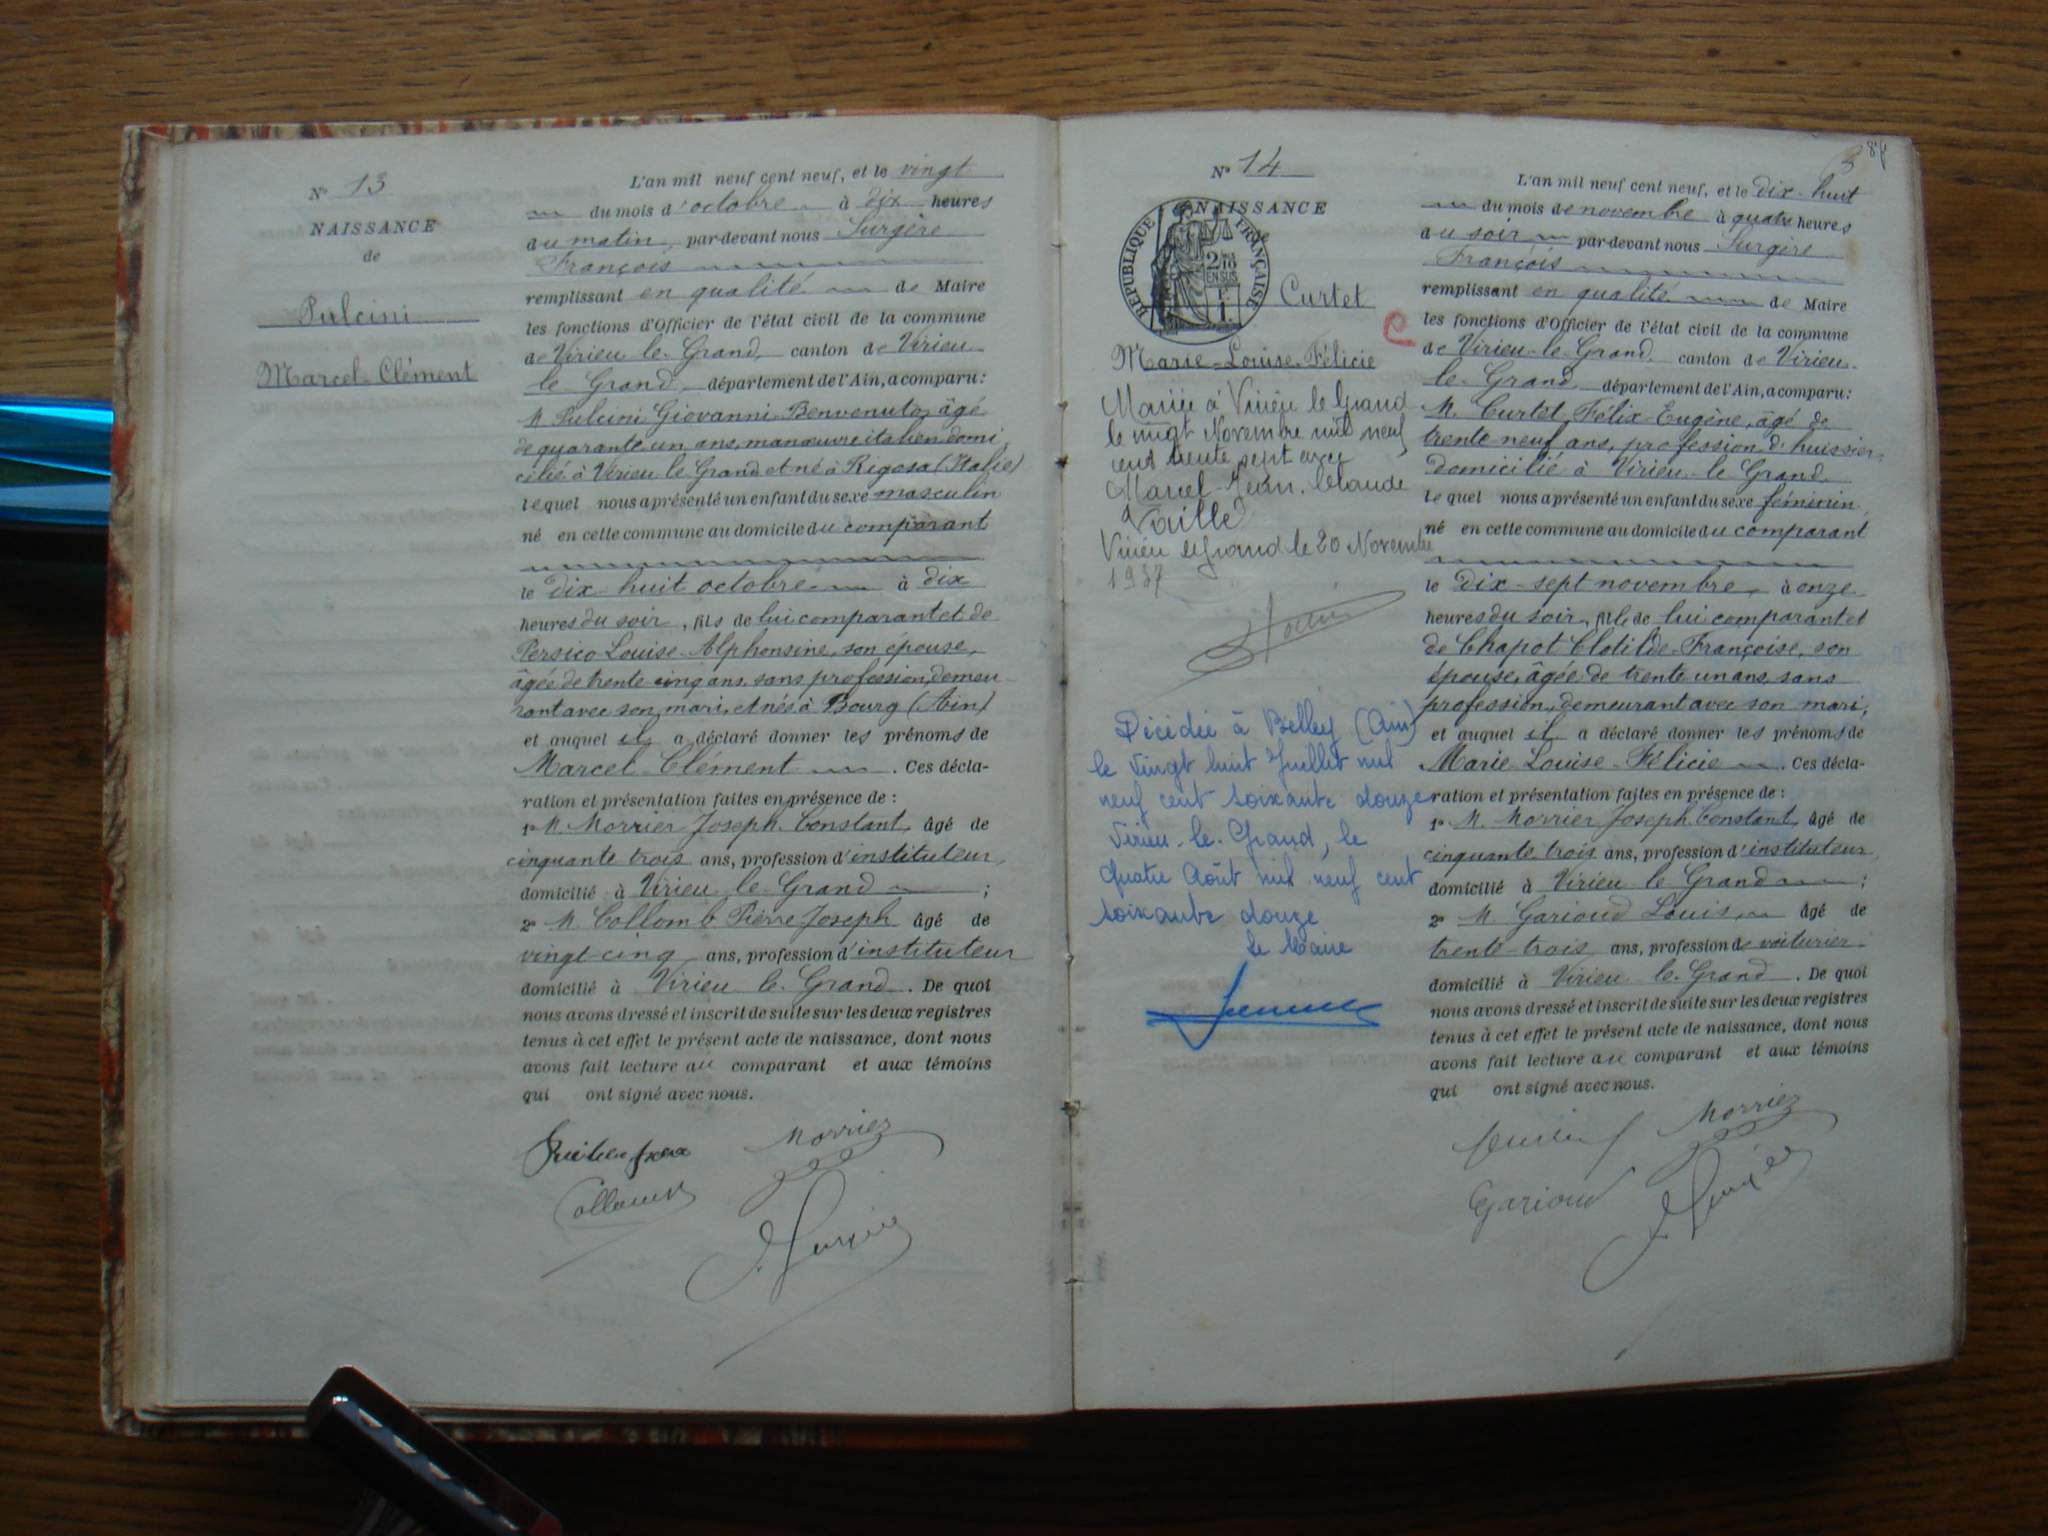 N° 13
NAISSANCE
de
Pulcini
Marcel-Clément
L'an mil neuf cent neuf, et le vingt
du mois d'octobre à dix heures
du matin, par-devant nous Surgère
François
remplissant en qualité de Maire
les fonctions d'Officier de l'état civil de la commune
de Virieu-le-Grand, canton de Virieu-
le-Grand département de l'Ain, a comparu :
M. Pulcini Giovanni Benvenuto, âgé
de quarante un ans, manœuvre italien domi
cilié à Virieu-le-Grand et né à Rigosa (Italie)
lequel nous a présenté un enfant du sexe masculin
né en cette commune au domicile du comparant
le dix-huit octobre à dix
heures du soir, fils de lui comparant et de
Persico Louise-Alphonsine, son épouse,
âgée de trente-cinq ans, sans profession, demeu-
rant avec son mari, et née à Bourg (Ain)
et auquel il a déclaré donner les prénoms de
Marcel-Clément. Ces décla-
ration et présentation faites en présence de :
1° M. Morrier Joseph-Constant, âgé de
cinquante-trois ans, profession d'instituteur,
domicilié à Virieu-le-Grand ;
2° M. Collomb Pierre-Joseph âgé de
vingt-cinq ans, profession d'instituteur
domicilié à Virieu-le-Grand. De quoi
nous avons dressé et inscrit de suite sur les deux registres
tenus à cet effet le présent acte de naissance, dont nous
avons fait lecture au comparant et aux témoins
qui ont signé avec nous.
Morrier
Collomb
Surgère
87
3
N° 14
NAISSANCE
de
RÉPUBLIQUE FRANÇAISE
2/10
EN SUS
1 F.
Curtet
Marie-Louise-Félicie
Mariée à Virieu le Grand
le vingt Novembre mil neuf
cent trente sept avec
Marcel-Jean-Claude
Vaillé
Virieu le Grand le 20 Novembre
1937
Décédée à Belley (Ain)
le vingt huit Juillet mil
neuf cent soixante douze
Virieu-le-Grand, le
quatre Août mil neuf cent
soixante douze
Le Maire
L'an mil neuf cent neuf, et le dix-huit
du mois de novembre à quatre heures
du soir par-devant nous Surgère
François
remplissant en qualité de Maire
les fonctions d'Officier de l'état civil de la commune
de Virieu-le-Grand, canton de Virieu-
le-Grand département de l'Ain, a comparu :
M. Curtet Félix-Eugène, âgé de
trente-neuf ans, profession d'huissier,
domicilié à Virieu-le-Grand
lequel nous a présenté un enfant du sexe féminin
né en cette commune au domicile du comparant
le dix-sept novembre, à onze
heures du soir, fille de lui comparant et
de Chapot Clotilde-Françoise, son
épouse, âgée de trente un ans, sans
profession, demeurant avec son mari,
et auquel il a déclaré donner les prénoms de
Marie-Louise-Félicie. Ces décla-
ration et présentation faites en présence de :
1° M. Morrier Joseph Constant, âgé de
cinquante-trois ans, profession d'instituteur,
domicilié à Virieu-le-Grand ;
2° M. Garioud Louis, âgé de
trente-trois ans, profession de voiturier
domicilié à Virieu-le-Grand. De quoi
nous avons dressé et inscrit de suite sur les deux registres
tenus à cet effet le présent acte de naissance, dont nous
avons fait lecture au comparant et aux témoins
qui ont signé avec nous.
Morrier
Garioud
Surgère